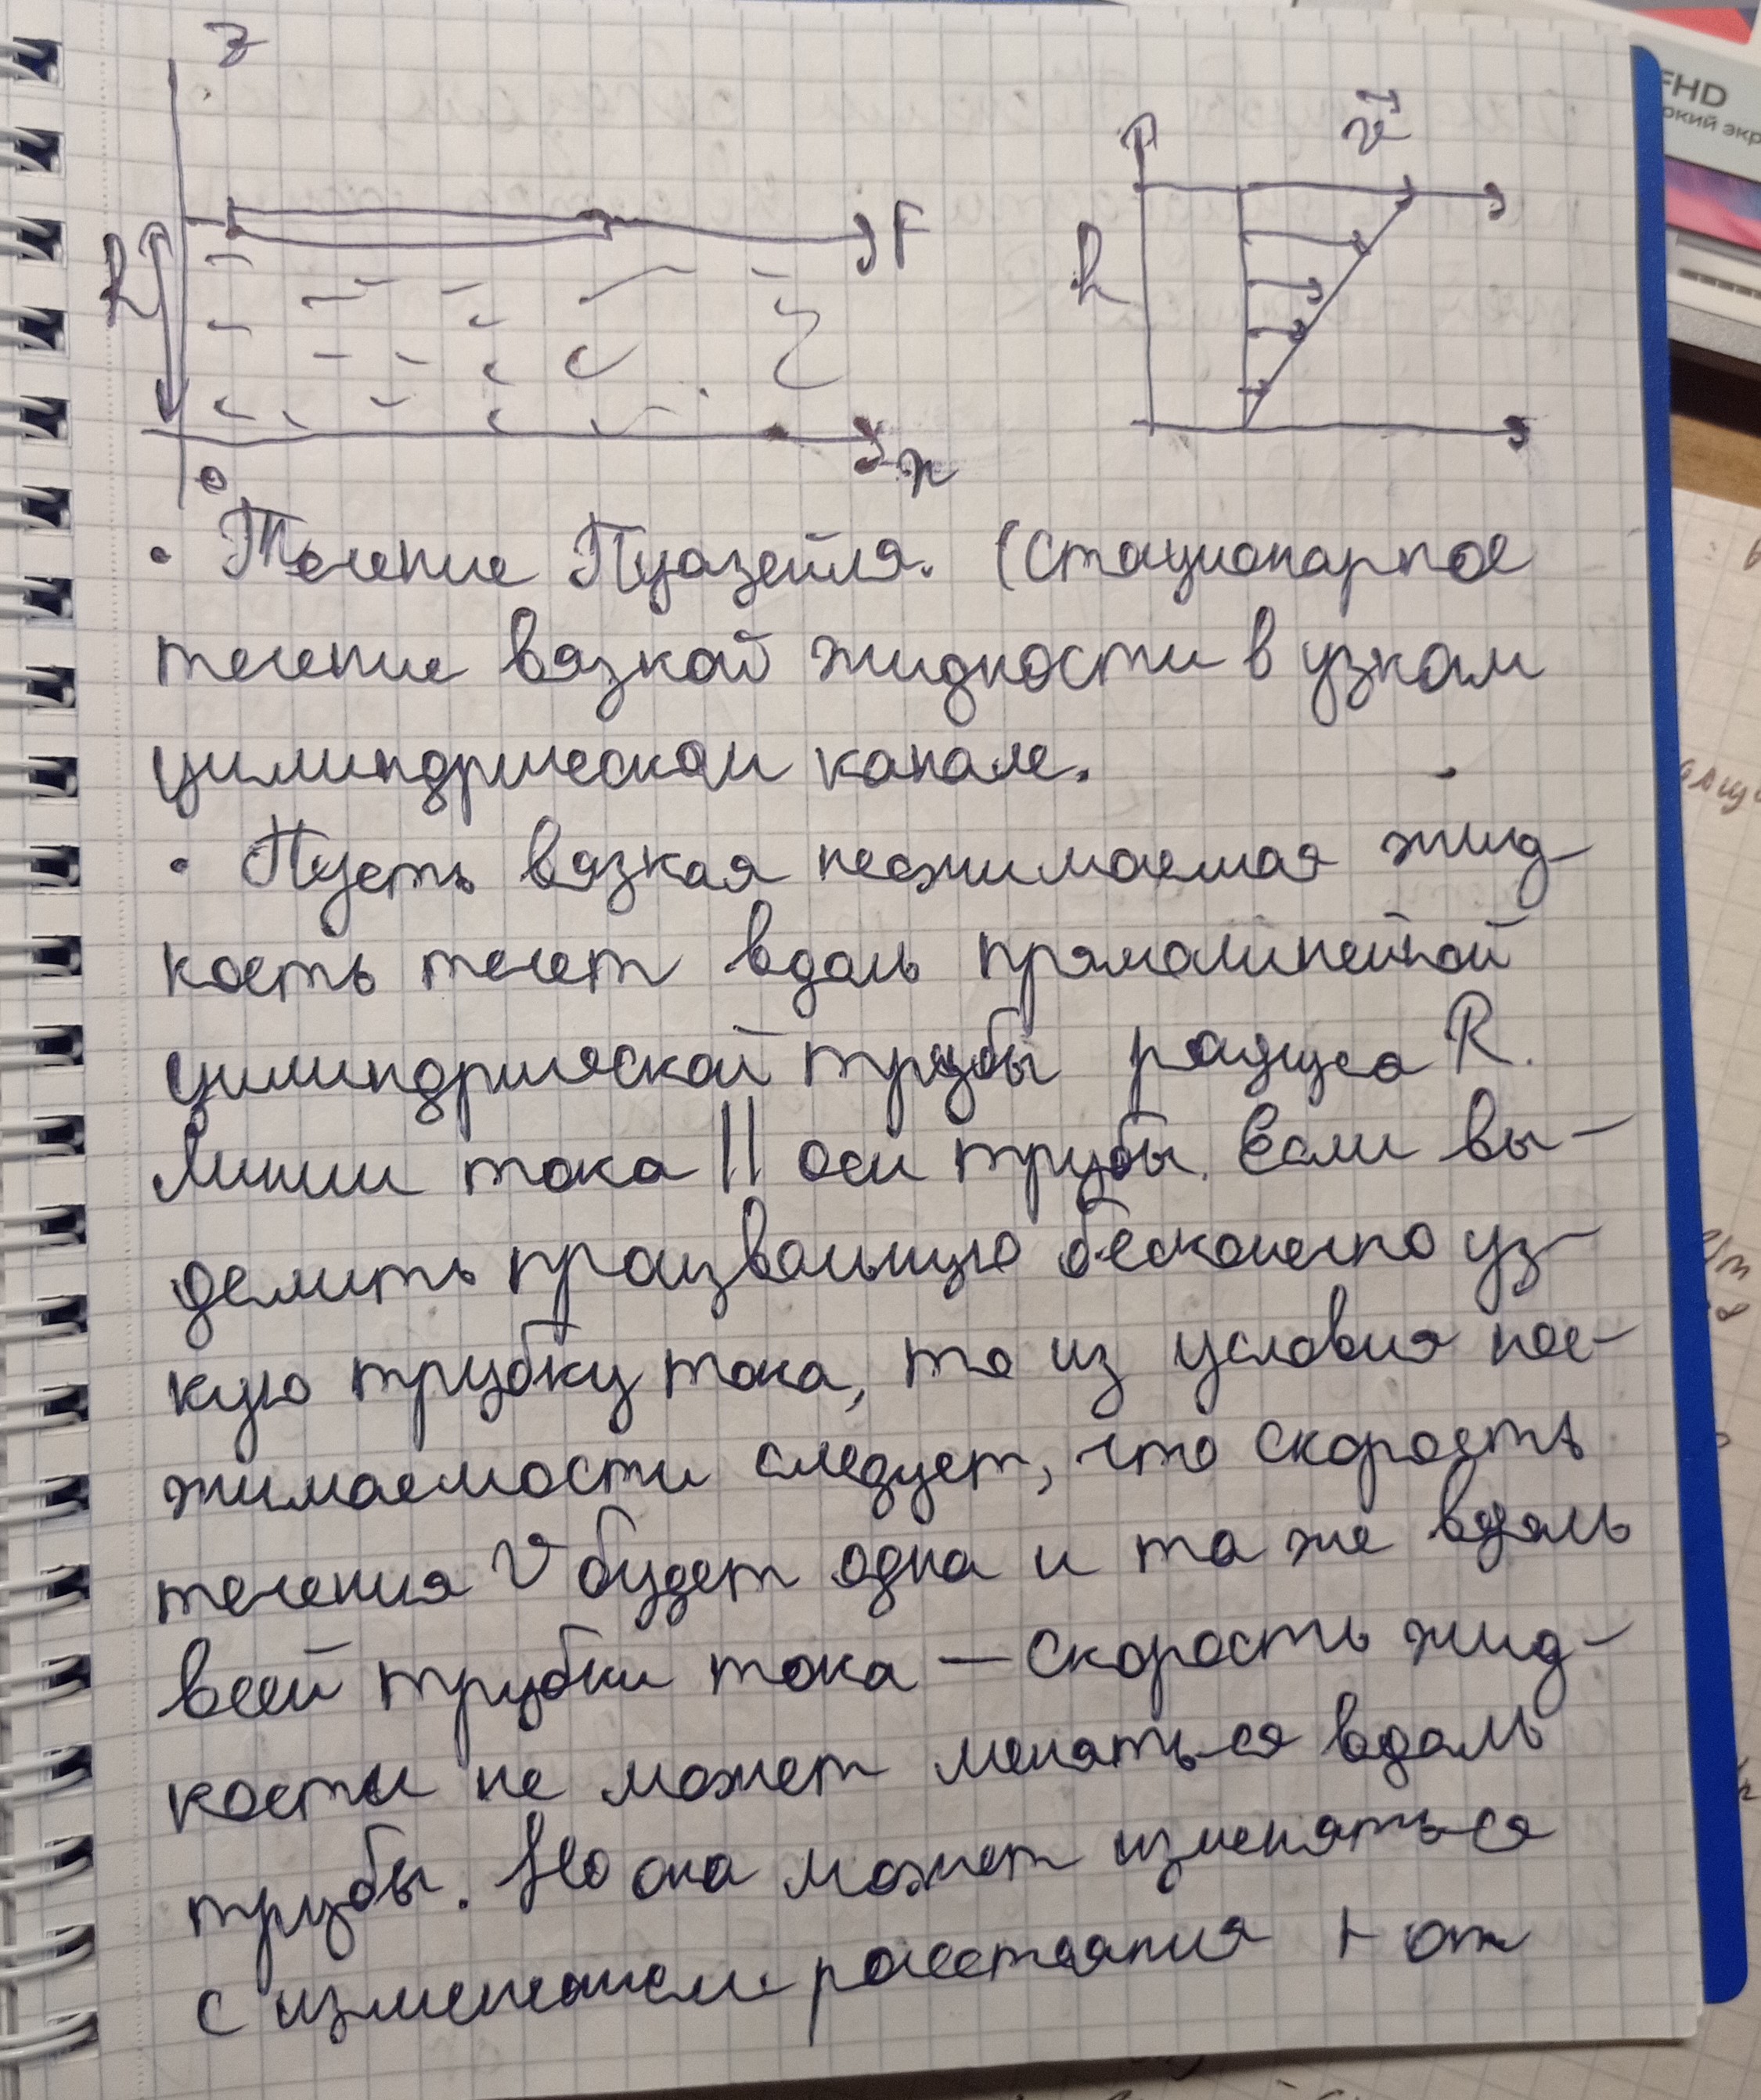 z
F
h
x
0
h
v
• Течение Пуазейля. (Стационарное
течение вязкой жидкости в узком
цилиндрическом канале.
• Пусть вязкая несжимаемая жид-
кость течет вдоль прямолинейной
цилиндрической трубы радиуса R.
Линии тока || оси трубы. Если вы-
делить произвольную бесконечно уз-
кую трубку тока, то из условия нес-
жимаемости следует, что скорость
течения V будет одна и та же вдоль
всей трубки тока — скорость жид-
кости не может меняться вдоль
трубы. Но она может изменяться
с изменением расстояния r от
FHD